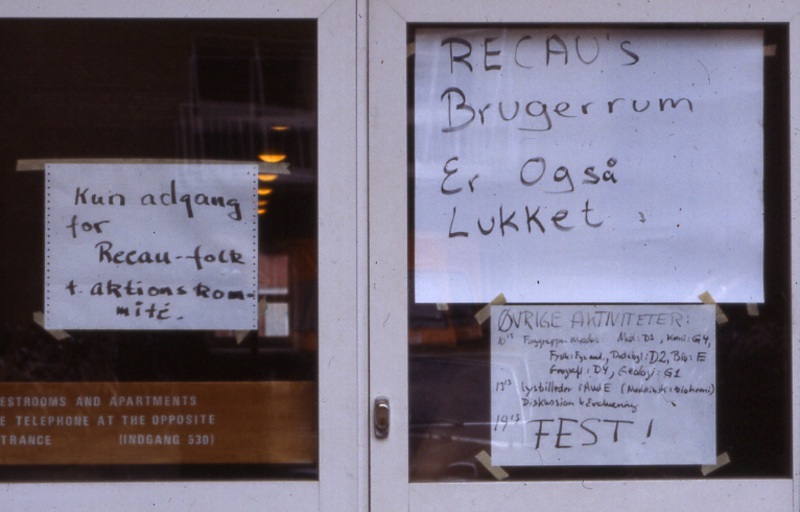 Kun adgang
for
Recau-folk
+ aktionskom-
mité.
ESTROOMS AND APARTMENTS
E TELEPHONE AT THE OPPOSITE
TRANCE (INDGANG 530)
RECAU's
Brugerrum
Er Også
Lukket
ØVRIGE AKTIVITETER:
10¹⁵ Faggruppemøder: D1, Kemi: G4,
D2, Bio: E
Geografi: D4, Geologi: G1
Lysbilleder i Aud E
Diskussion & Evaluering
19¹⁵ FEST!